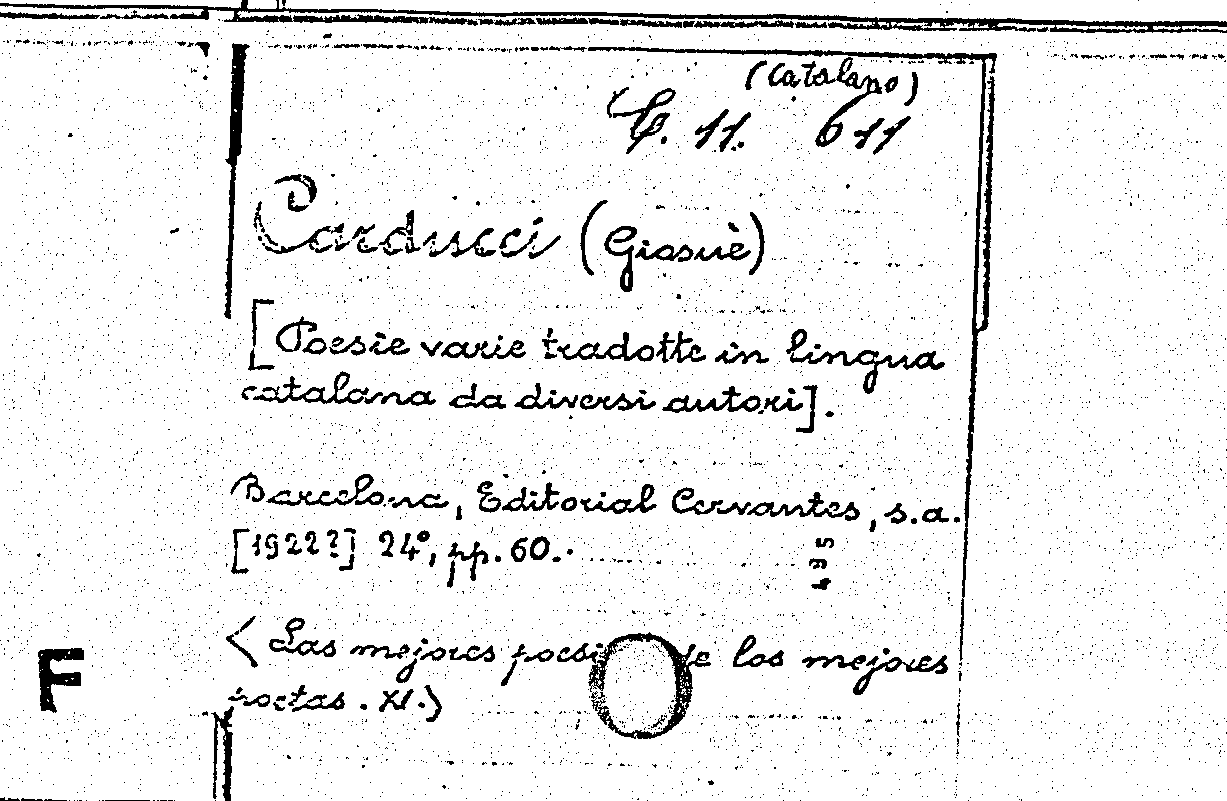 (Catalano)
C. 11. 611
Carducci (Giosuè)
[Poesie varie tradotte in lingua
catalana da diversi autori].
Barcelona, Editorial Cervantes, s.a.
[1922?] 24°, pp. 60.
< Las mejores de los mejores
poetas. XI.>
F